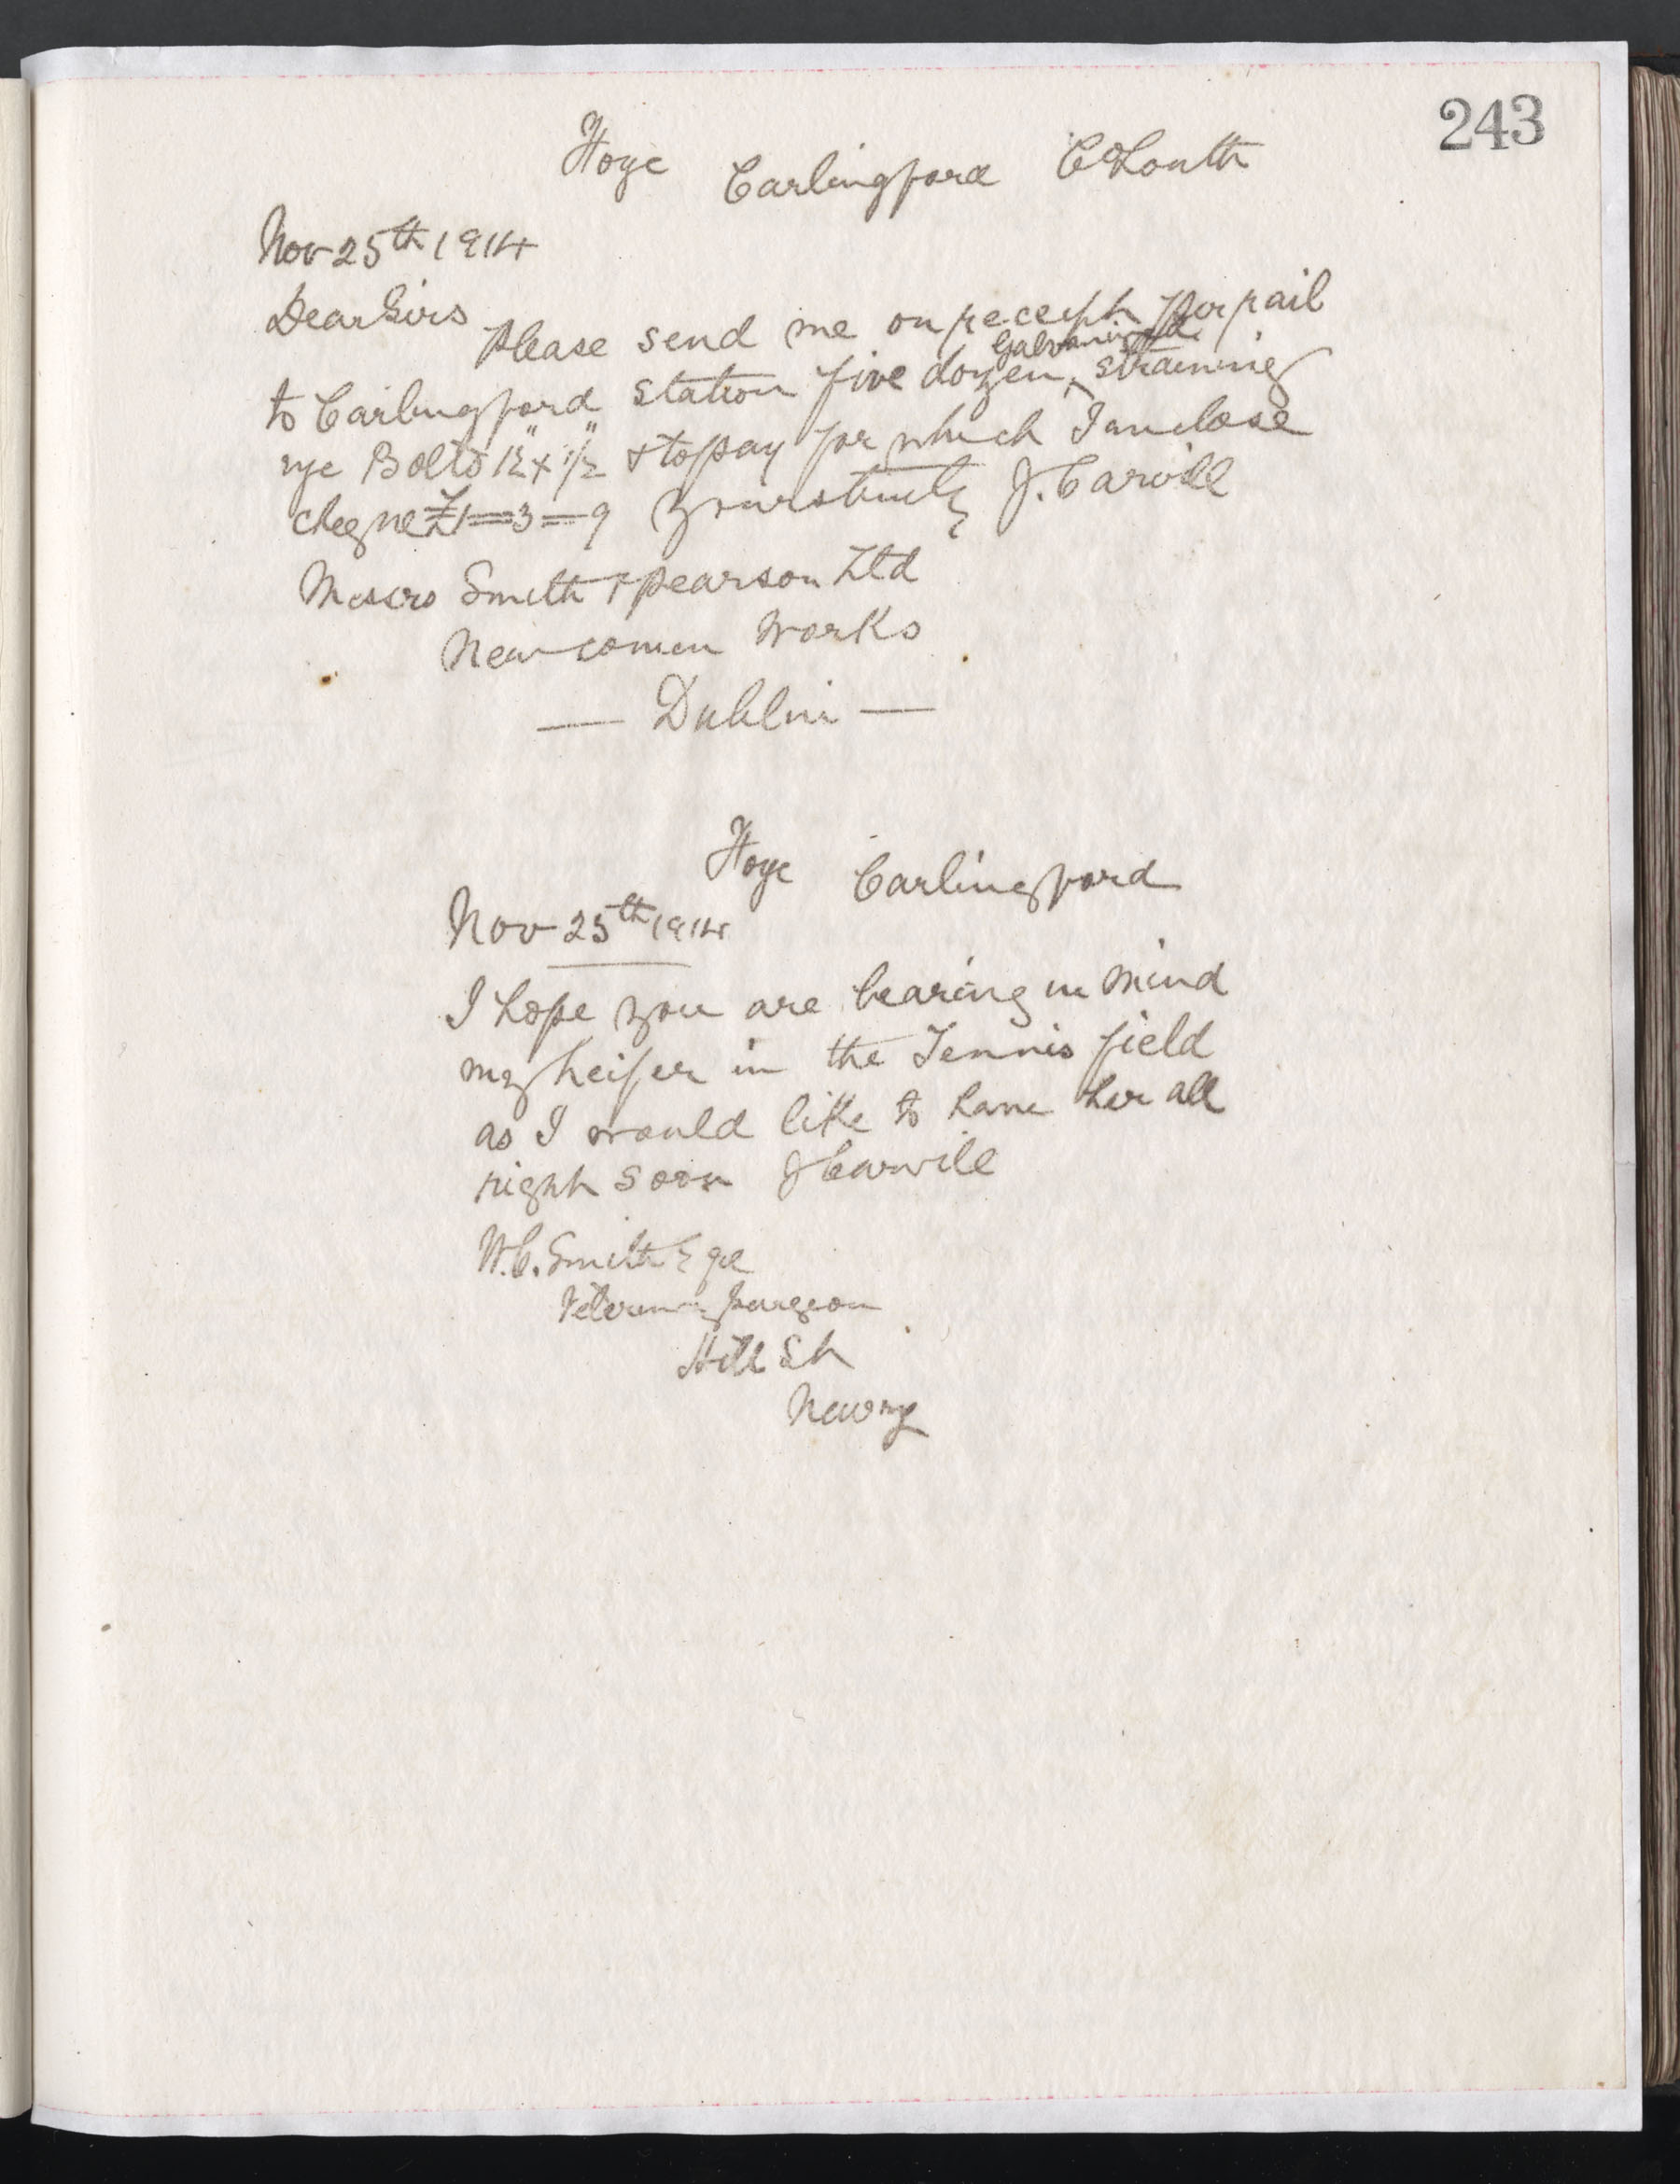 243
Hoye Carlingford Co Louth
Nov 25th 1914
Dear Sirs
Please send me on receipt per rail
to Carlingford station five dozen Galvanised straining
eye Bolts 12" x 1/2" & to pay for which I enclose
cheque £1=3=9 Yours truly J. Carvill
Messrs Smith & Pearson Ltd
Newcomen Works
— Dublin —
Hoye Carlingford
Nov 25th 1914
I hope you are bearing in mind
my heifer in the Tennis field
as I would like to have her all
right soon J Carvill
W.C. Smith Esqe
Veterinary Surgeon
Hill St
Newry